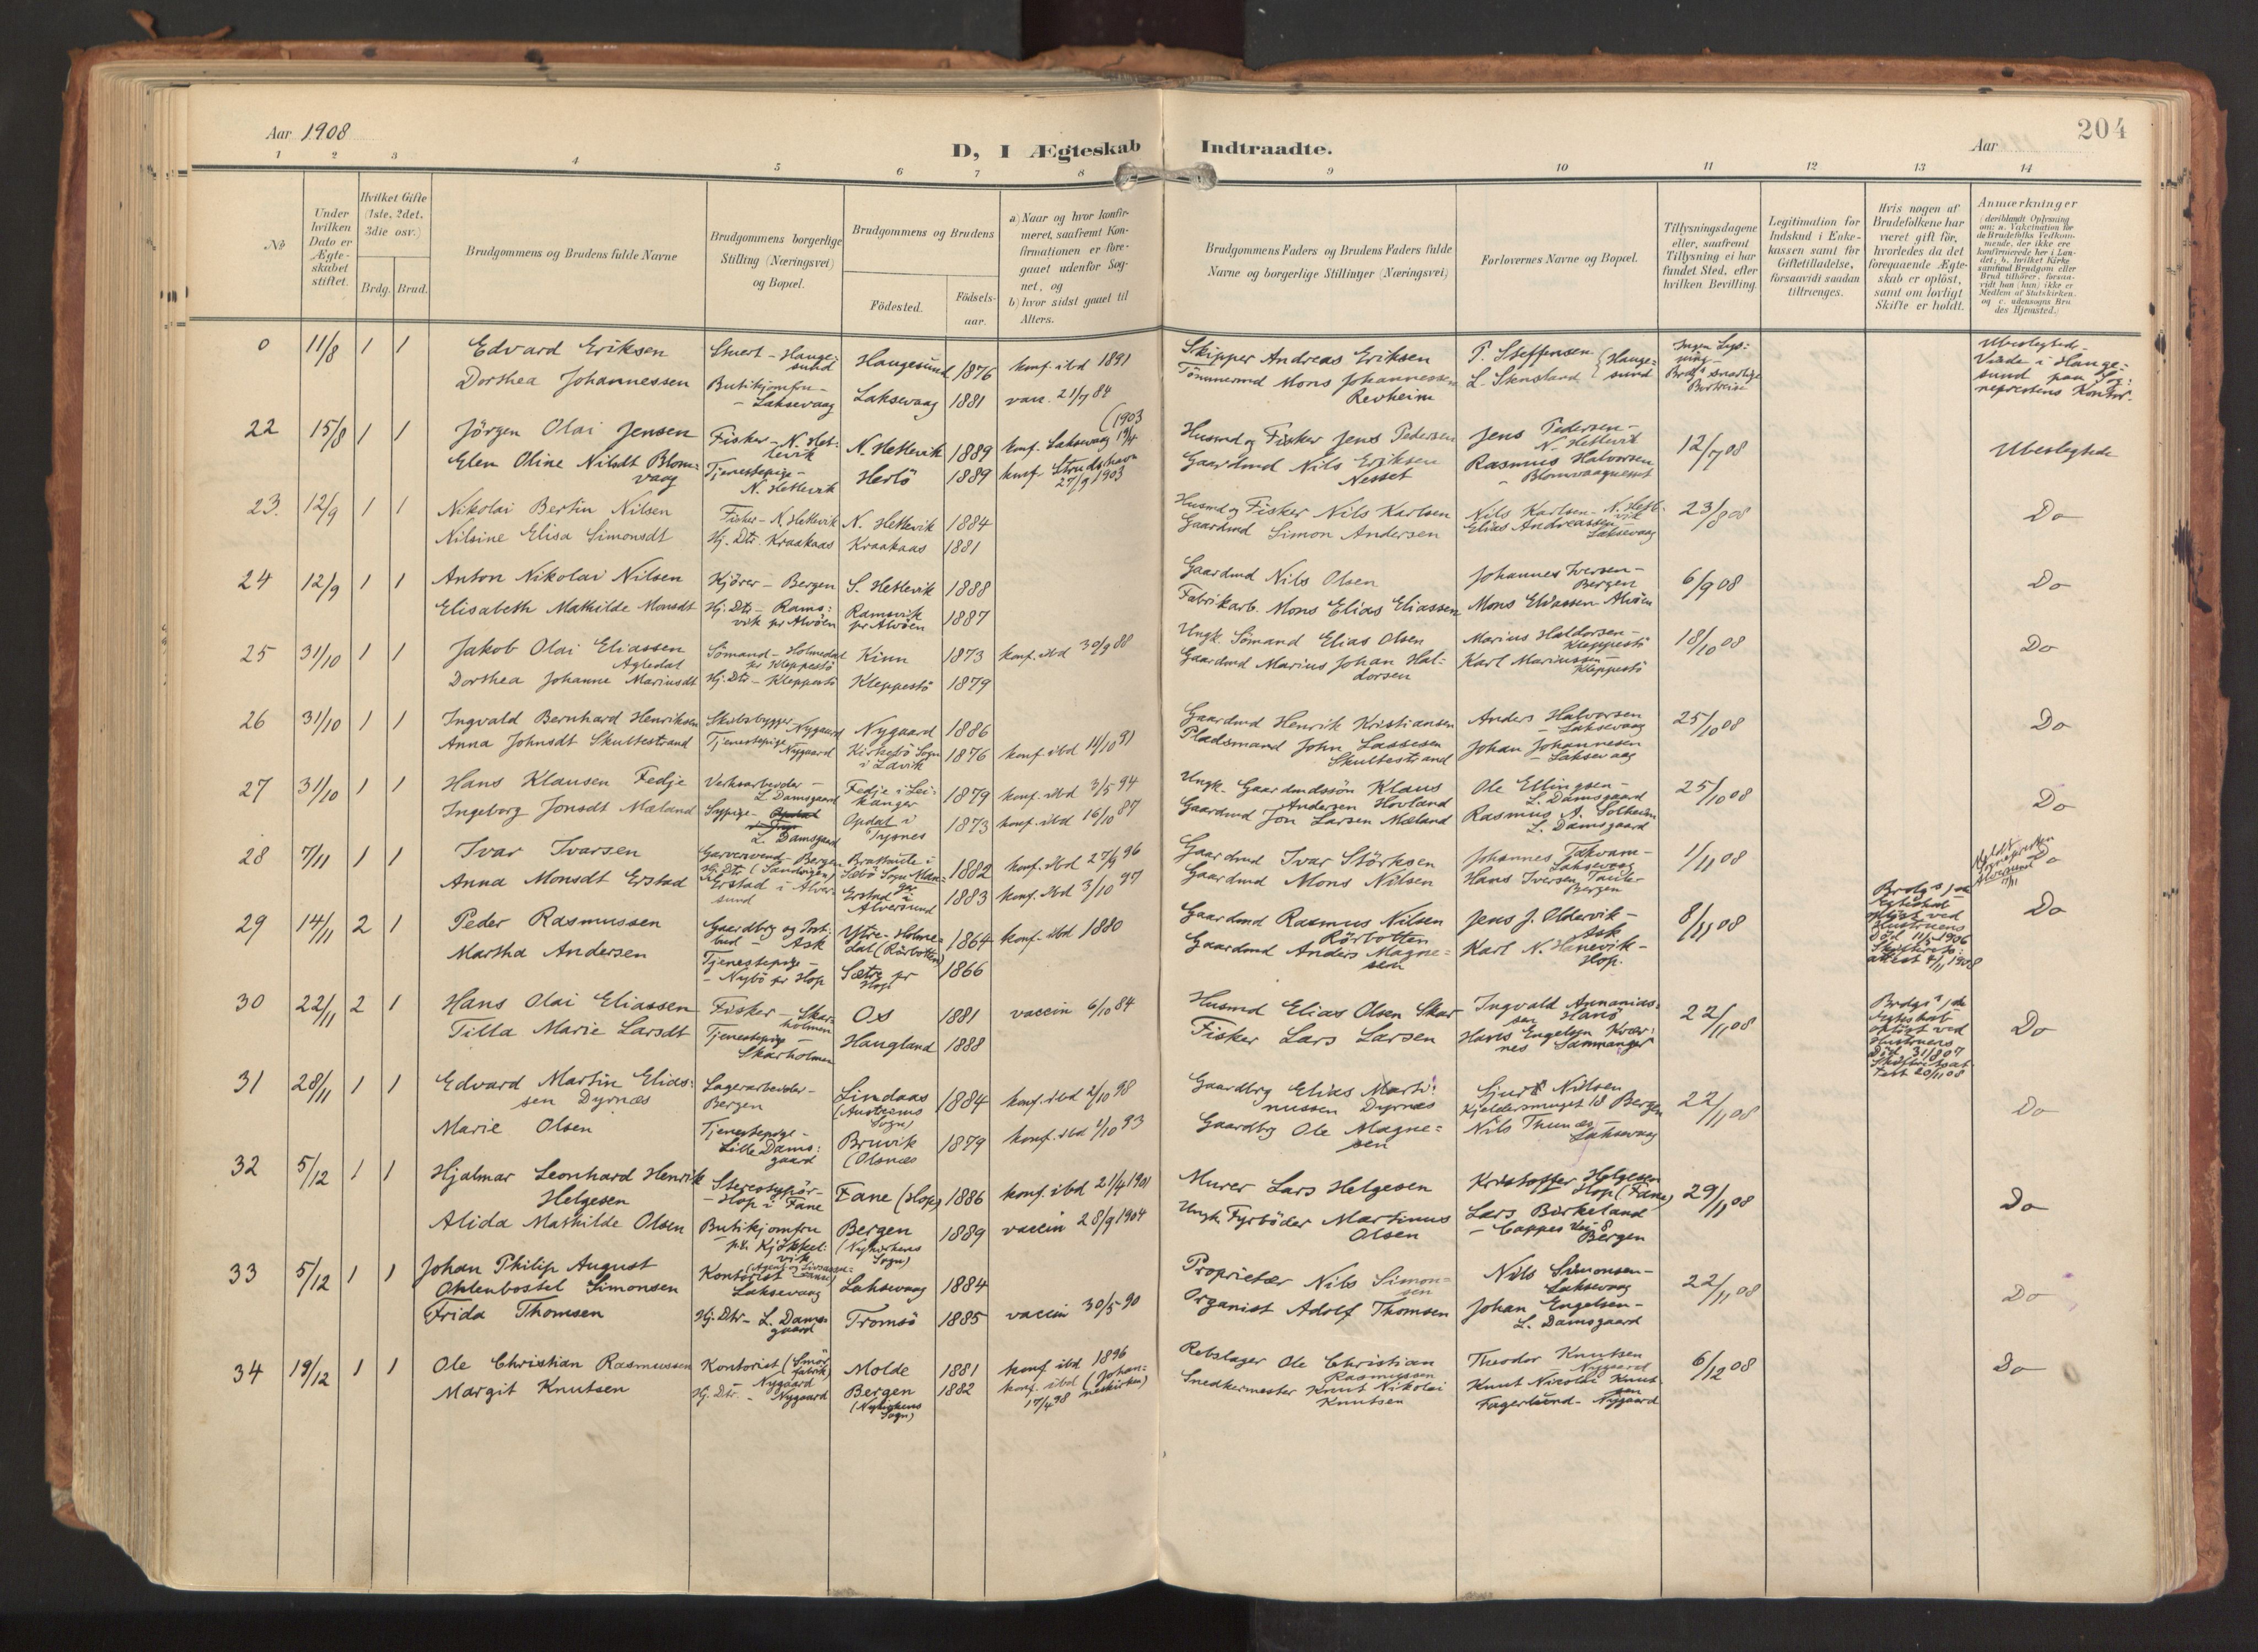 Aar 1908
D, I Ægteskab Indtraadte.
Aar
204
1 2 3 4 5 6 7 8 9 10 11 12 13 14
No
Under hvilken Dato er Ægteskabet stiftet.
Hvilket Gifte (1ste, 2det, 3die osv.)
Brdg. Brud.
Brudgommens og Brudens fulde Navne
Brudgommens borgerlige Stilling (Næringsvei) og Bopæl.
Brudgommens og Brudens
Födested.
Födselsaar.
a) Naar og hvor konfirmeret, saafremt Konfirmationen er foregaaet udenfor Sognet, og
b) hvor sidst gaaet til Alters.
Brudgommens Faders og Brudens Faders fulde Navne og borgerlige Stillinger (Næringsvei)
Forlovernes Navne og Bopæl.
Tillysningsdagene eller, saafremt Tillysning ei har fundet Sted, efter hvilken Bevilling.
Legitimation for Indskud i Enkekassen samt for Giftetilladelse, forsaavidt saadan tiltrænges.
Hvis nogen af Brudefolkene har været gift för, hvorledes da det foregaaende Ægteskab er oplöst, samt om lovligt Skifte er holdt.
Anmærkninger (deriblandt Oplysning om: a. Vakcination for de Brudefolks Vedkommende, der ikke ere konfirmerede her i Landet; b. hvilket Kirkesamfund Brudgom eller Brud tilhörer, forsaavidt han (hun) ikke er Medlem af Statskirken, og c. udensogns Brudes Hjemsted.)
0 11/8 1 1 Edvard Eriksen Stuert - Haugesund Haugesund 1876 konf. ibd 1891 Skipper Andreas Eriksen T. Steffensen Haugesund
Dorthea Johannessen Butikjomfru - Laksevaag Laksevaag 1881 vacc. 21/7 84 Tömmermd Mons Johannessen Revheim
Ubeslegtede. Viede i Haugesund paa Sogneprestens Kontor.
22 15/8 1 1 Jörgen Olai Jensen Fisker - N. Hetlevik N. Hetlevik 1889 konf. Laksevaag (1903 Husmd og Fisker Jens Pedersen Jens Pedersen - N. Hetlevik 12/7 08 Ubeslegtede
Elen Oline Nilsdt Blomvaag Tjenestepige - N. Hetlevik Herlö 1889 konf. Strudshavn 27/9 1903 Gaardmd Nils Eriksen Nesset Rasmus Halvorsen
23. 12/9 1 1 Nikolai Bertin Nilsen Fisker - N. Hetlevik N. Hetlevik 1884 Husmd og Fisker Nils Karlsen Nils Karlsen - N. Hetlevik 23/8 08 Do
Nilsine Elisa Simonsdt Hj. Dtr. Kraakaas Kraakaas 1881 Gaardmd Simon Andersen Elias Andreassen Laksevaag
24 12/9 1 1 Anton Nikolai Nilsen Kjörer - Bergen S. Hetlevik 1888 Gaardmd Nils Olsen Johannes Iversen - Bergen 6/9 08 Do
Elisabeth Mathilde Monsdt Hj. Dtr - Ramsvik pr Alvöen Ramsvik pr Alvöen 1887 Fabrikarb. Mons Elias Eliassen Mons Eliassen - Alvöen
25 31/10 1 1 Jakob Olai Eliassen Agledal Sömand - Holmedal pr Kleppestö Kinn 1873 konf. ibd 30/9 88 Ungk. Sömand Elias Olsen Marius Haldorsen - Kleppestö 18/10 08 Do
Dorthea Johanne Mariusdt Hj. Dtr - Kleppestö Kleppestö 1879 Gaardmd Marius Johan Haldorsen Karl Mariussen - Kleppestö
26 31/10 1 1 Ingvald Bernhard Henriksen Skibsbygger Nygaard Nygaard 1886 Gaardmd Henrik Kristiansen Anders Halvorsen - Laksevaag 25/10 08 Do
Anna Johnsdt Skultestrand Tjenestepige Nygaard Kirkebö Sogn i Lavik 1876 konf. ibd 14/10 91 Pladsmand John Lassesen Skultestrand Johan Johannesen - Laksevaag
27 31/10 1 1 Hans Klausen Fedje Verksarbeider - L. Damsgaard Fedje i Leikanger 1879 konf. ibd 3/5 94 Ungk. Gaardmdssön Klaus Andersen Hovland Ole Ellingsen - L. Damsgaard 25/10 08 Do
Ingeborg Jonsdt Mæland Sypige - L. Damsgaard Opdal i Tysnes 1873 konf. ibd 16/10 87 Gaardmd Jon Larsen Mæland Rasmus A. Solheim L. Damsgaard
28 7/11 1 1 Ivar Ivarsen Garversvend - Bergen (Sandvigen) 1882 konf. ibd 27/9 96 Gaardmd Ivar Störksen Johannes Takvam - Laksevaag 1/11 08 Do
Anna Monsdt Erstad Hj. Dtr Erstad i Alversund Erstad i Alversund 1883 konf. ibd 3/10 97 Gaardmd Mons Nilsen Hans Iversen Bergen
29 14/11 2 1 Peder Rasmussen Gaardbrg og Postbud - Ask Ytre-Holmedal (Rörbotten) 1864 konf. ibd 1880 Gaardmd Rasmus Nilsen Rörbotten Jens J. Oldervik - Ask 8/11 08 Brdgs 1ste Ægteskab oplöst ved Hustruens Död 11/5 1906 Skifteretsattest 4/11 1908 Do
Martha Andersen Tjenestepige - Nybö pr Hop Sætre pr Hop 1866 Gaardmd Anders Magnesen Karl N. Hanevik - Hop.
30 22/11 2 1 Hans Olai Eliassen Fisker - Skarholmen Os 1881 vaccin 6/10 84 Husmd Elias Olsen Skar Ingvald Annaniassen Hans 22/11 08 Brdgs 1ste Ægteskab oplöst ved Hustruens Död 31/8 07 Skifteretsattest 20/11 08 Do
Tilla Marie Larsdt Tjenestepige - Skarholmen Haugland 1888 Fisker Lars Larsen Hans Engelsen Samnanger
31 28/11 1 1 Edvard Martin Eliassen Dyrnæs Lagerarbeider - Bergen Lindaas (Austrems Sogn) 1884 konf. ibd 2/10 98 Gaardbrg Elias Martinussen Dyrnæs Sjur Nilsen Kjeldersmuget 18 Bergen 22/11 08 Do
Marie Olsen Tjenestepige - Lille Damsgaard Bruvik (Olsnæs 1879 konf. ibd 1/10 93 Gaardbrg Ole Magnesen Nils Thunæs - Laksevaag
32 5/12 1 1 Hjalmar Leonhard Henrik Helgesen Stereotypör - Hop i Fane Fane (Hop) 1886 konf. ibd 21/4 1901 Murer Lars Helgesen Kristoffer Helgesen Hop (Fane) 29/11 08 Do
Alida Mathilde Olsen Butikjomfru p.t. Kjökkelvik Bergen (Nykirkens Sogn) 1889 vaccin 28/9 1904 Ungk. Fyrböder Martinus Olsen Lars Birkeland - Cappes Vei 8 Bergen
33 5/12 1 1 Johan Philip August Ohlenbostel Simonsen Kontorist Laksevaag Laksevaag 1884 Proprietær Nils Simonsen Nils Simonsen - Laksevaag 22/11 08 Do
Frida Thomsen Hj. Dtr - L. Damsgaard Tromsö 1885 vaccin 30/5 90 Organist Adolf Thomsen Johan Engelsen - L. Damsgaard
34 19/12 1 1 Ole Christian Rasmussen Kontorist (Smörfabrik) Nygaard Molde 1881 konf ibd 1896 Rebslager Ole Christian Rasmussen Theodor Knutsen - Nygaard 6/12 08 Do
Margit Knutsen Hj. Dtr. - Nygaard Bergen (Nykirkens Sogn) 1882 konf. ibd (Johanneskirken) 17/4 98 Snedkermester Knut Nikolai Knutsen Knut Nicolai Knutsen Fagerlund - Nygaard